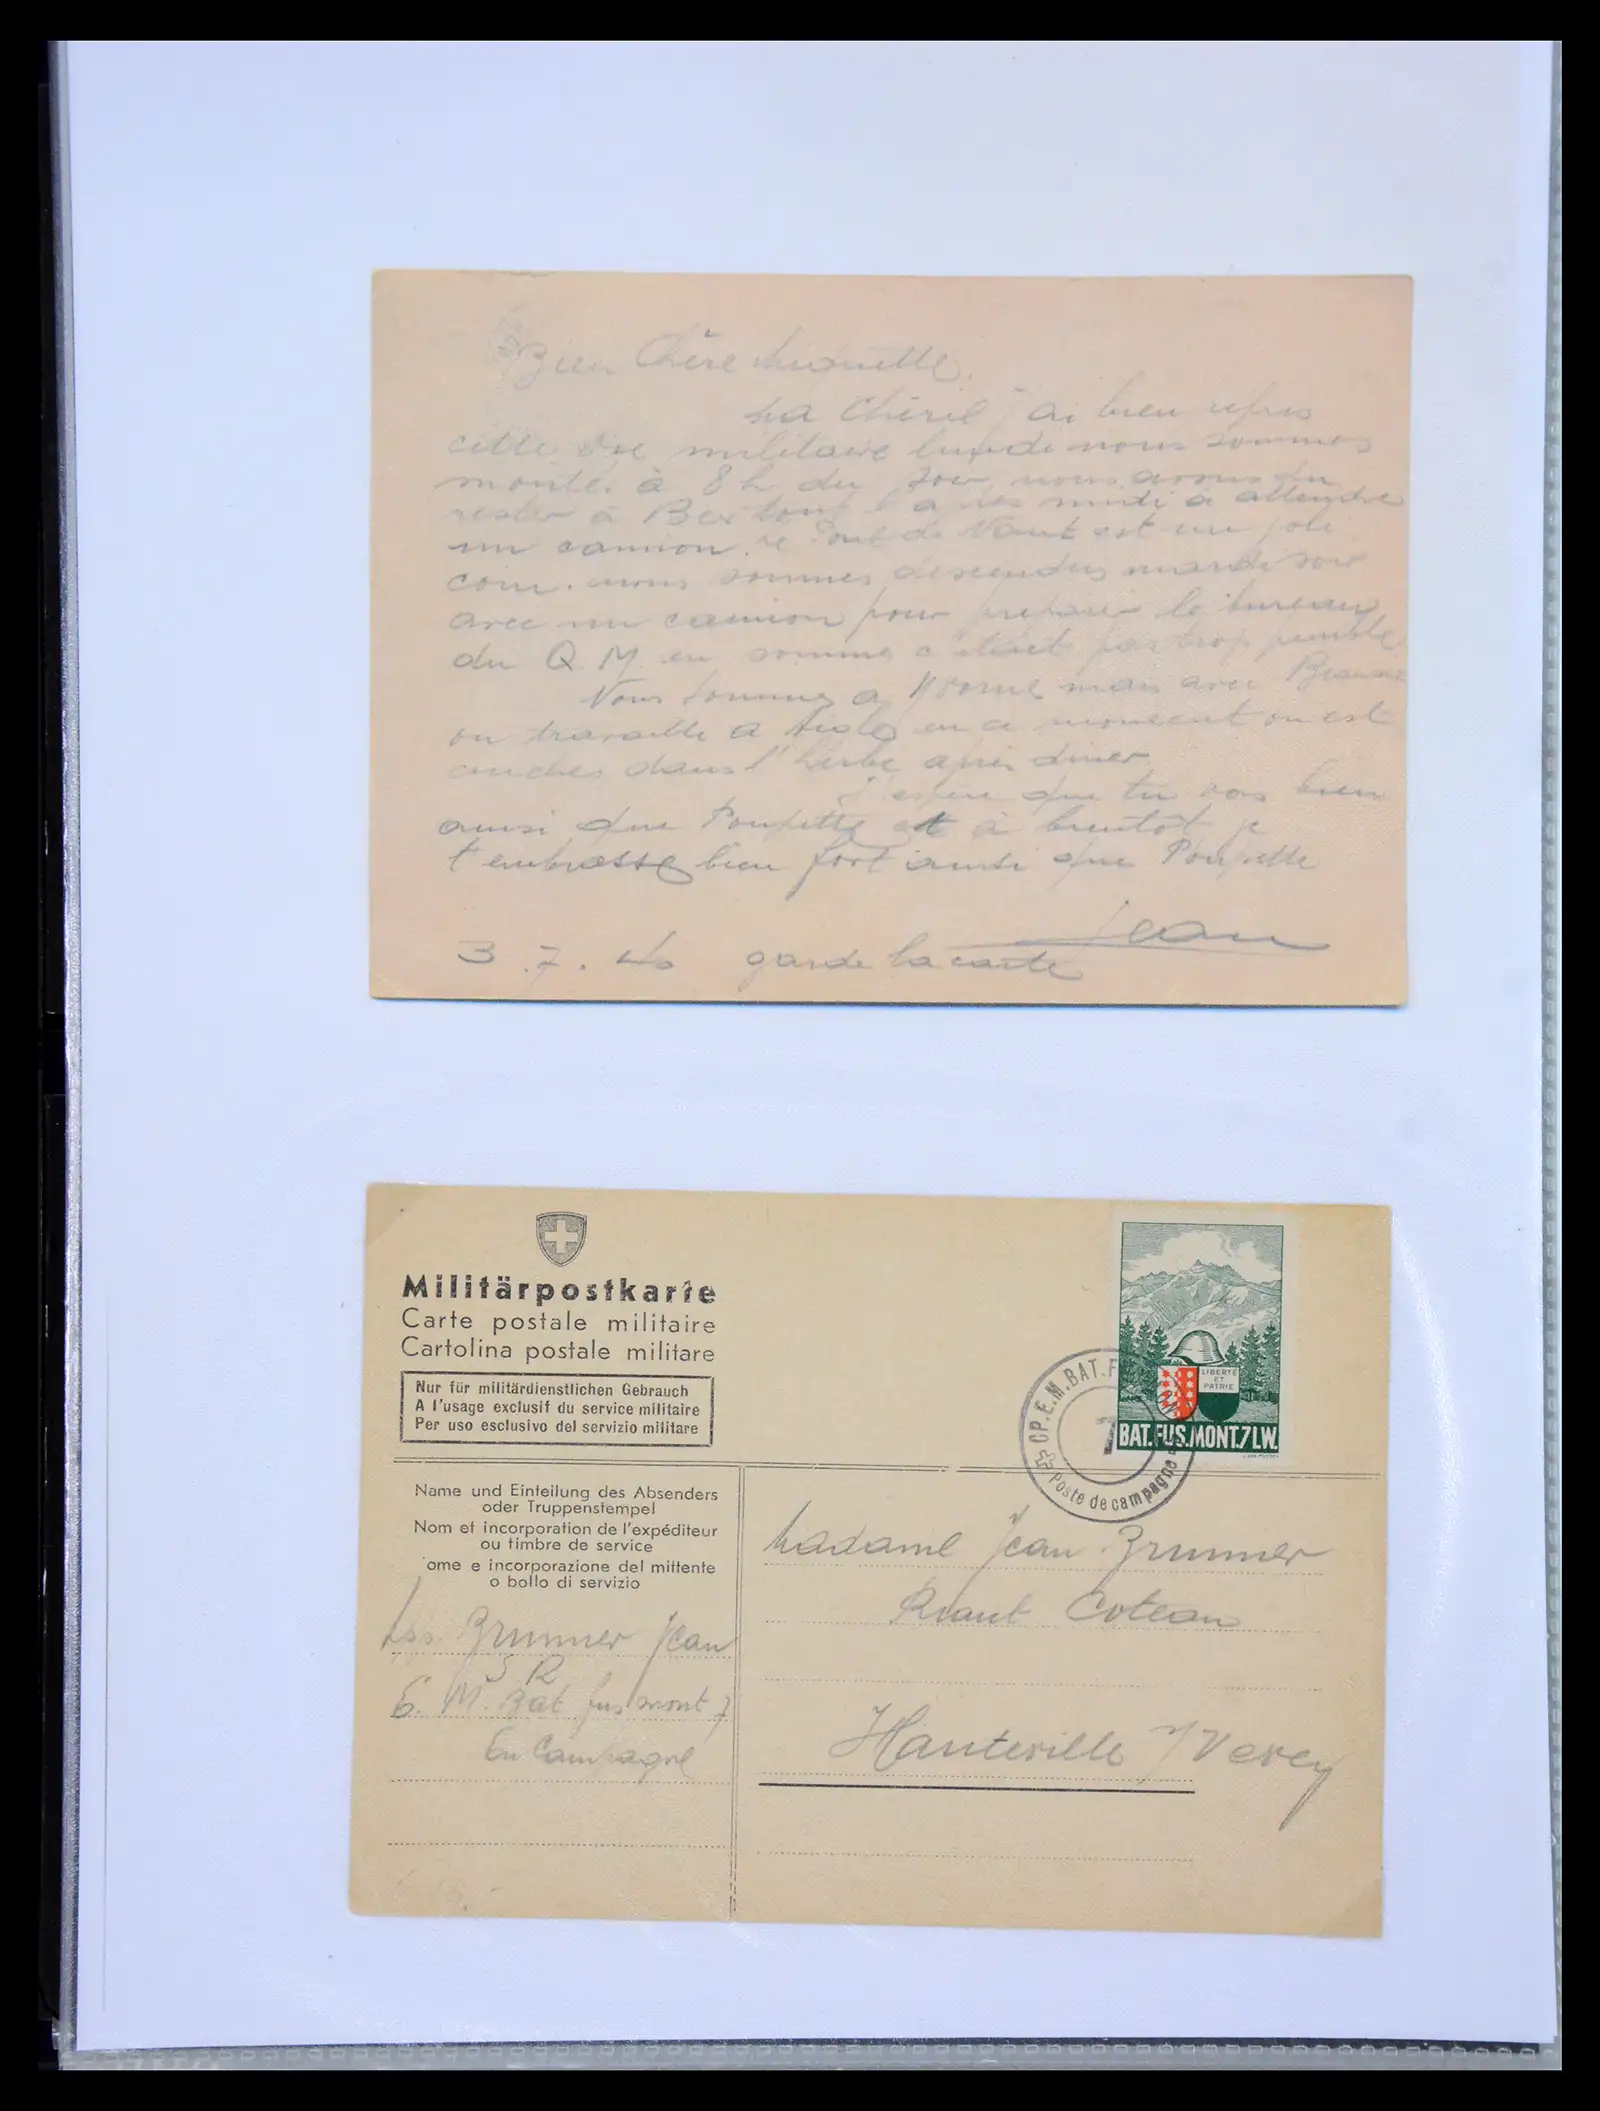 Bien Chère Mignette.
Ma Chérie j'ai bien repris
cette vie militaire lundi nous sommes
monté à 8 h du soir nous avons du
rester à Bex tout l'après midi a attendre
un camion. le Pont de Nant est un joli
coin. nous sommes descendus mardi soir
avec un camion pour preparer le bureau
du Q. M. en somme c'etait pas trop penible
Nous sommes a Yvorne mais avec
on travaille a Aigle en ce moment on est
couchés dans l'herbe après diner
J'espère que tu vas bien
ainsi que Poupette et à bientôt je
t'embrasse bien fort ainsi que Poupette
Jean
3.7.40 garde la carte
Militärpostkarte
Carte postale militaire
Cartolina postale militare
Nur für militärdienstlichen Gebrauch
A l'usage exclusif du service militaire
Per uso esclusivo del servizio militare
LIBERTÉ
ET
PATRIE
BAT.FUS.MONT.7 LW.
CP.E.M.BAT.F
7
Poste de campagne
Name und Einteilung des Absenders
oder Truppenstempel
Nom et incorporation de l'expéditeur
ou timbre de service
ome e incorporazione del mittente
o bollo di servizio
Brunner Jean
S R
E. M. Bat fus mont 7
En Campagne
Madame Jean Brunner
Riant Coteau
Hauteville s/Vevey